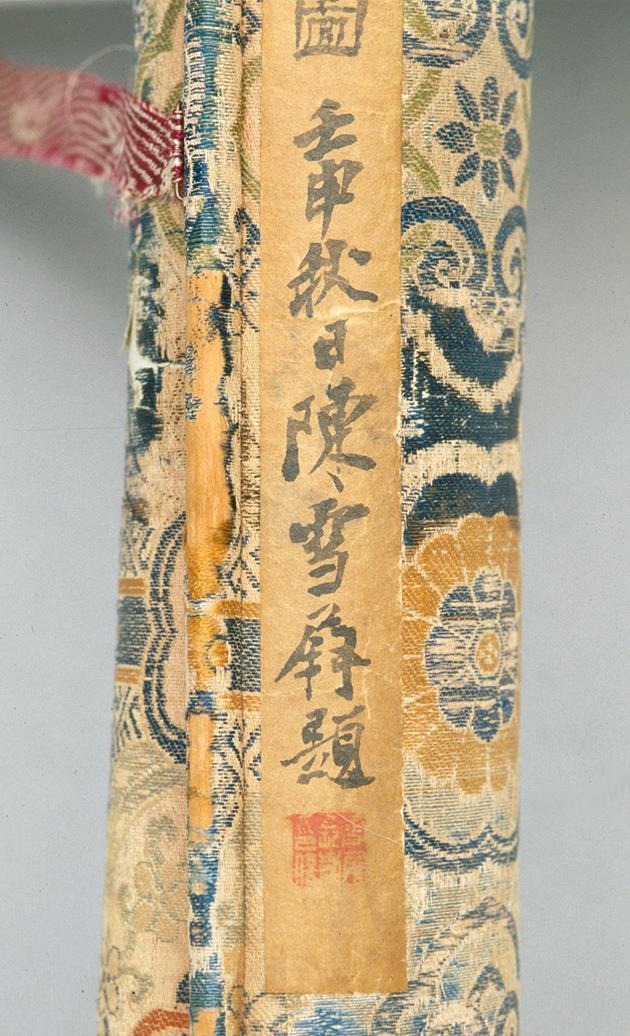 圖 壬申秋日陳雪題